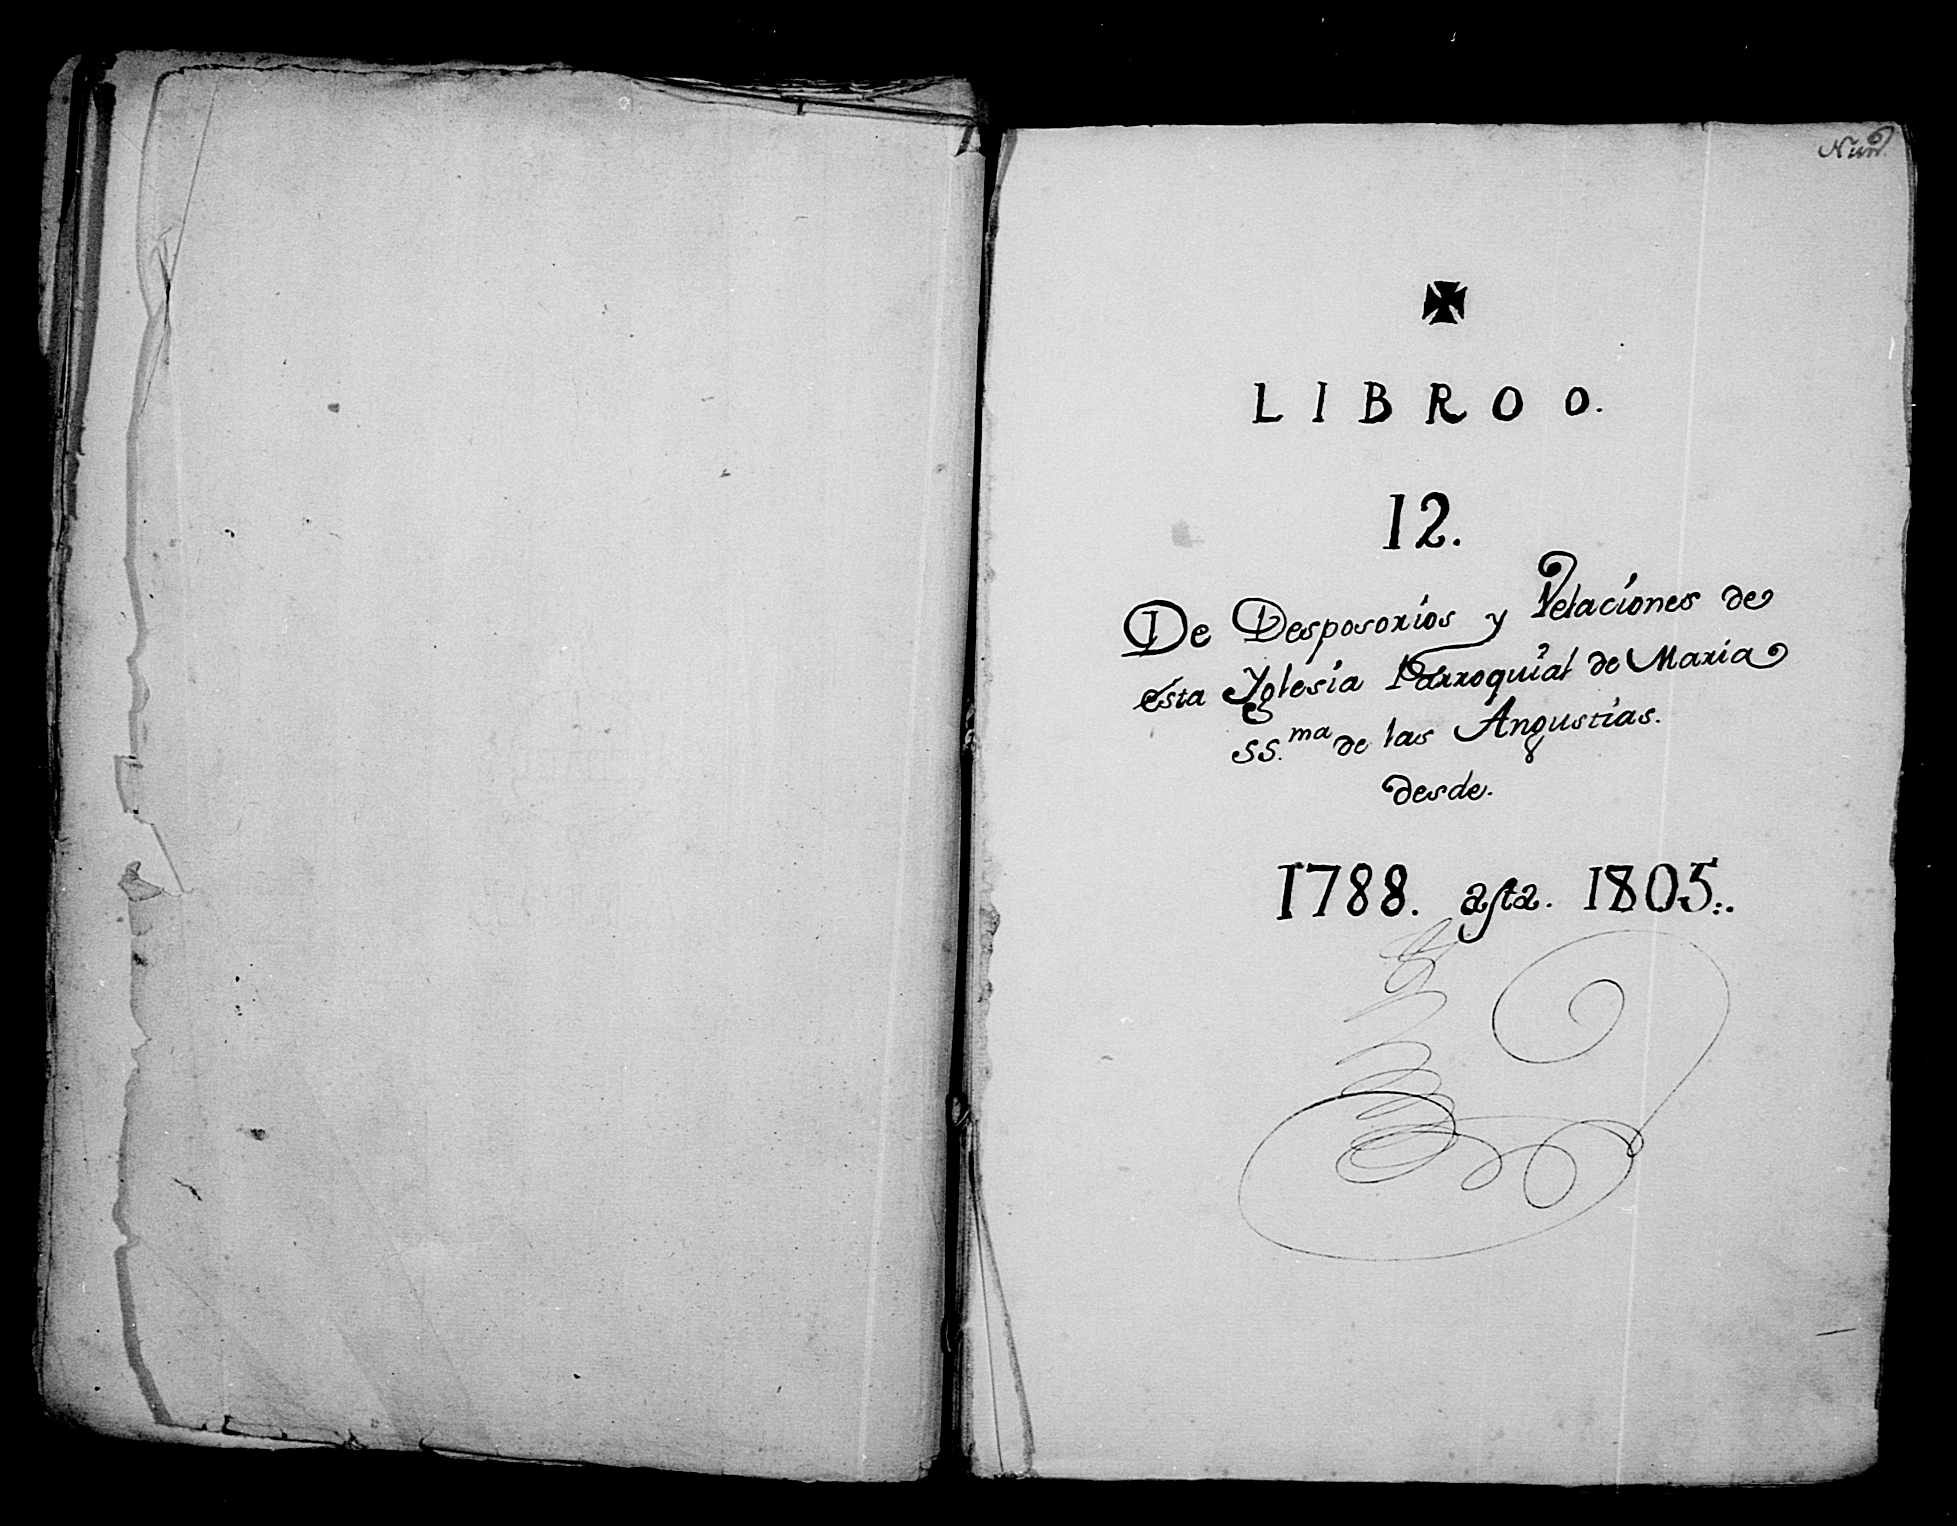 Num.
✠
LIBRO O.
12.
De Desposorios y Velaciones de
esta Yglesia Parroquial de Maria
SS.ma de las Angustias.
desde.
1788. asta. 1805.